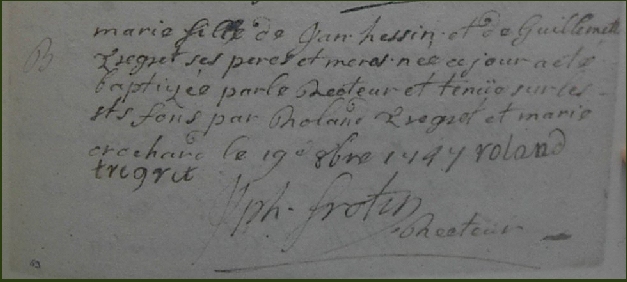 B
marie fille de Jan hessin et de Guillemette
Tregret ses peres et meres née ce jour a eté
baptizée par le Recteur et tenüe sur les
sts fons par Roland Tregret et marie
crochard le 19e 8bre 1747 roland
tregret
Jph. frotin
Recteur